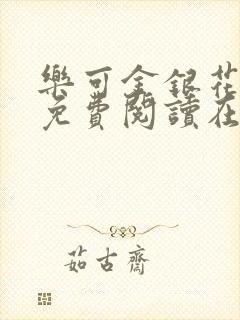 樂可金銀花
免費閱讀在
茹古齋